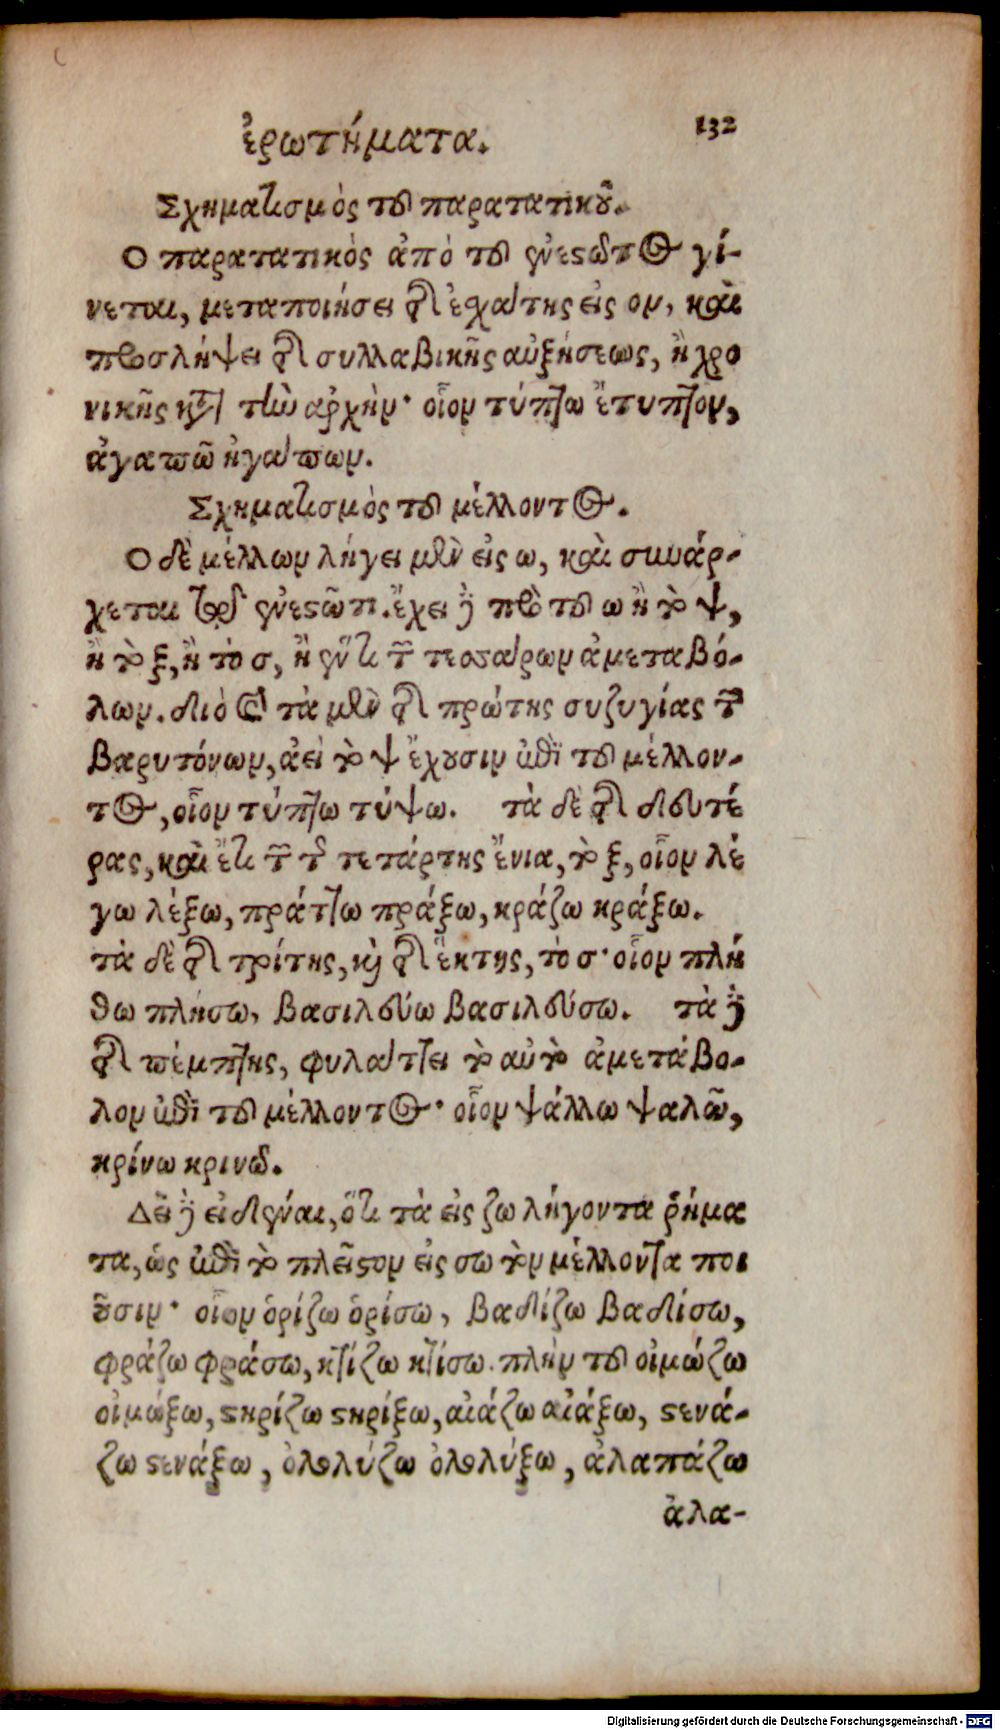 ἐρωτήματα.
132
Σχηματισμὸς τοῦ παρατατικοῦ.
Ο παρατατικὸς ἀπὸ τοῦ ἐνεστῶτος γί-
νεται, μεταποιήσει τῆς ἐσχάτης εἰς ον, καὶ
προσλήψει τῆς συλλαβικῆς αὐξήσεως, ἢ χρο
νικῆς κατὰ τὴν ἀρχὴν· οἷον τύπτω ἔτυπτον,
ἀγαπῶ ἠγάπων.
Σχηματισμὸς τοῦ μέλλοντος.
Ο δὲ μέλλων λήγει μὲν εἰς ω, καὶ συνάρ-
χεται τῷ ἐνεστῶτι. ἔχει δὲ πρὸ τοῦ ω ἢ τὸ ψ,
ἢ τὸ ξ, ἢ τὸ σ, ἢ ἕν τι τῶν τεσσάρων ἀμεταβό-
λων. διὸ καὶ τὰ μὲν τῆς πρώτης συζυγίας τῶν
βαρυτόνων, ἀεὶ τὸ ψ ἔχουσιν ἐπὶ τοῦ μέλλον-
τος, οἷον τύπτω τύψω. τὰ δὲ τῆς δευτέ
ρας, καὶ ἔτι τῶν τῆς τετάρτης ἔνια, τὸ ξ, οἷον λέ
γω λέξω, πράττω πράξω, κράζω κράξω.
τὰ δὲ τῆς τρίτης, καὶ τῆς ἕκτης, τὸ σ· οἷον πλή
θω πλήσω, βασιλεύω βασιλεύσω. τὰ δὲ
τῆς πέμπτης, φυλάττει τὸ αὐτὸ ἀμετάβο-
λον ἐπὶ τοῦ μέλλοντος· οἷον ψάλλω ψαλῶ,
κρίνω κρινῶ.
Δεῖ δὲ εἰδέναι, ὅτι τὰ εἰς ζω λήγοντα ῥήμα
τα, ὡς ἐπὶ τὸ πλεῖστον εἰς σω τὸν μέλλοντα ποι
οῦσιν· οἷον ὁρίζω ὁρίσω, βαδίζω βαδίσω,
φράζω φράσω, κτίζω κτίσω. πλὴν τοῦ οἰμώζω
οἰμώξω, στηρίζω στηρίξω, αἰάζω αἰάξω, στενά-
ζω στενάξω, ὀλολύζω ὀλολύξω, ἀλαπάζω
ἀλα-
Digitalisierung gefördert durch die Deutsche Forschungsgemeinschaft - DFG